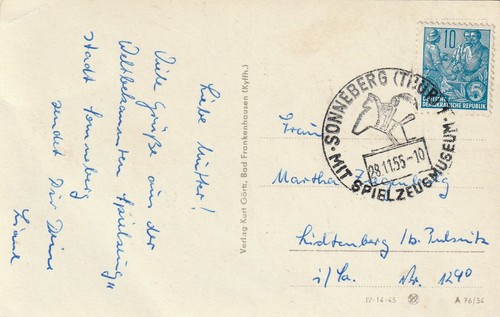 Liebe Mutter!
Viele Grüße aus der
Weltbekannten „Spielzeug
stadt Sonneberg"
sendet Dir Deine
Verlag Kurt Görtz, Bad Frankenhausen (Kyffh.)
10
5
DEUTSCHE
DEMOKRATISCHE REPUBLIK
SONNEBERG (THÜR)
28.11.55-10
MIT SPIELZEUGMUSEUM
Frau
Martha Ziegenbalg
Lichtenberg /b. Pulsnitz
i/Sa. Nr. 129c
IV-14-45
A 76/54